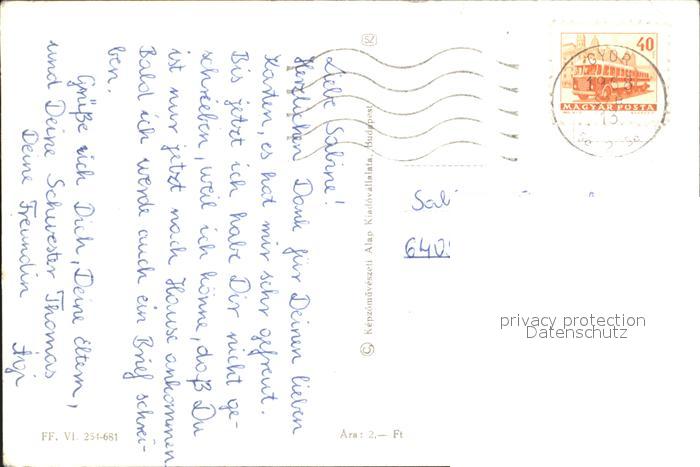 Liebe Sabine!
Herzlichen Dank für Deinen lieben
Karten, es hat mir sehr gefreut.
Bis jetzt ich habe Dir nicht ge-
schrieben, weil ich könne, daß Du
ist nur jetzt nach Hause ankommen.
Bald ich werde auch ein Brief schrei-
ben.
Grüße ich Dich, Deine Eltern,
und Deine Schwester Thomas
Deine Freundin
Ági
FF. VI. 254-681
Ára: 2,— Ft
© Képzőművészeti Alap Kiadóvállalata, Budapest
SZ
40
MAGYAR POSTA
GYŐR
Sab
640
privacy protection
Datenschutz